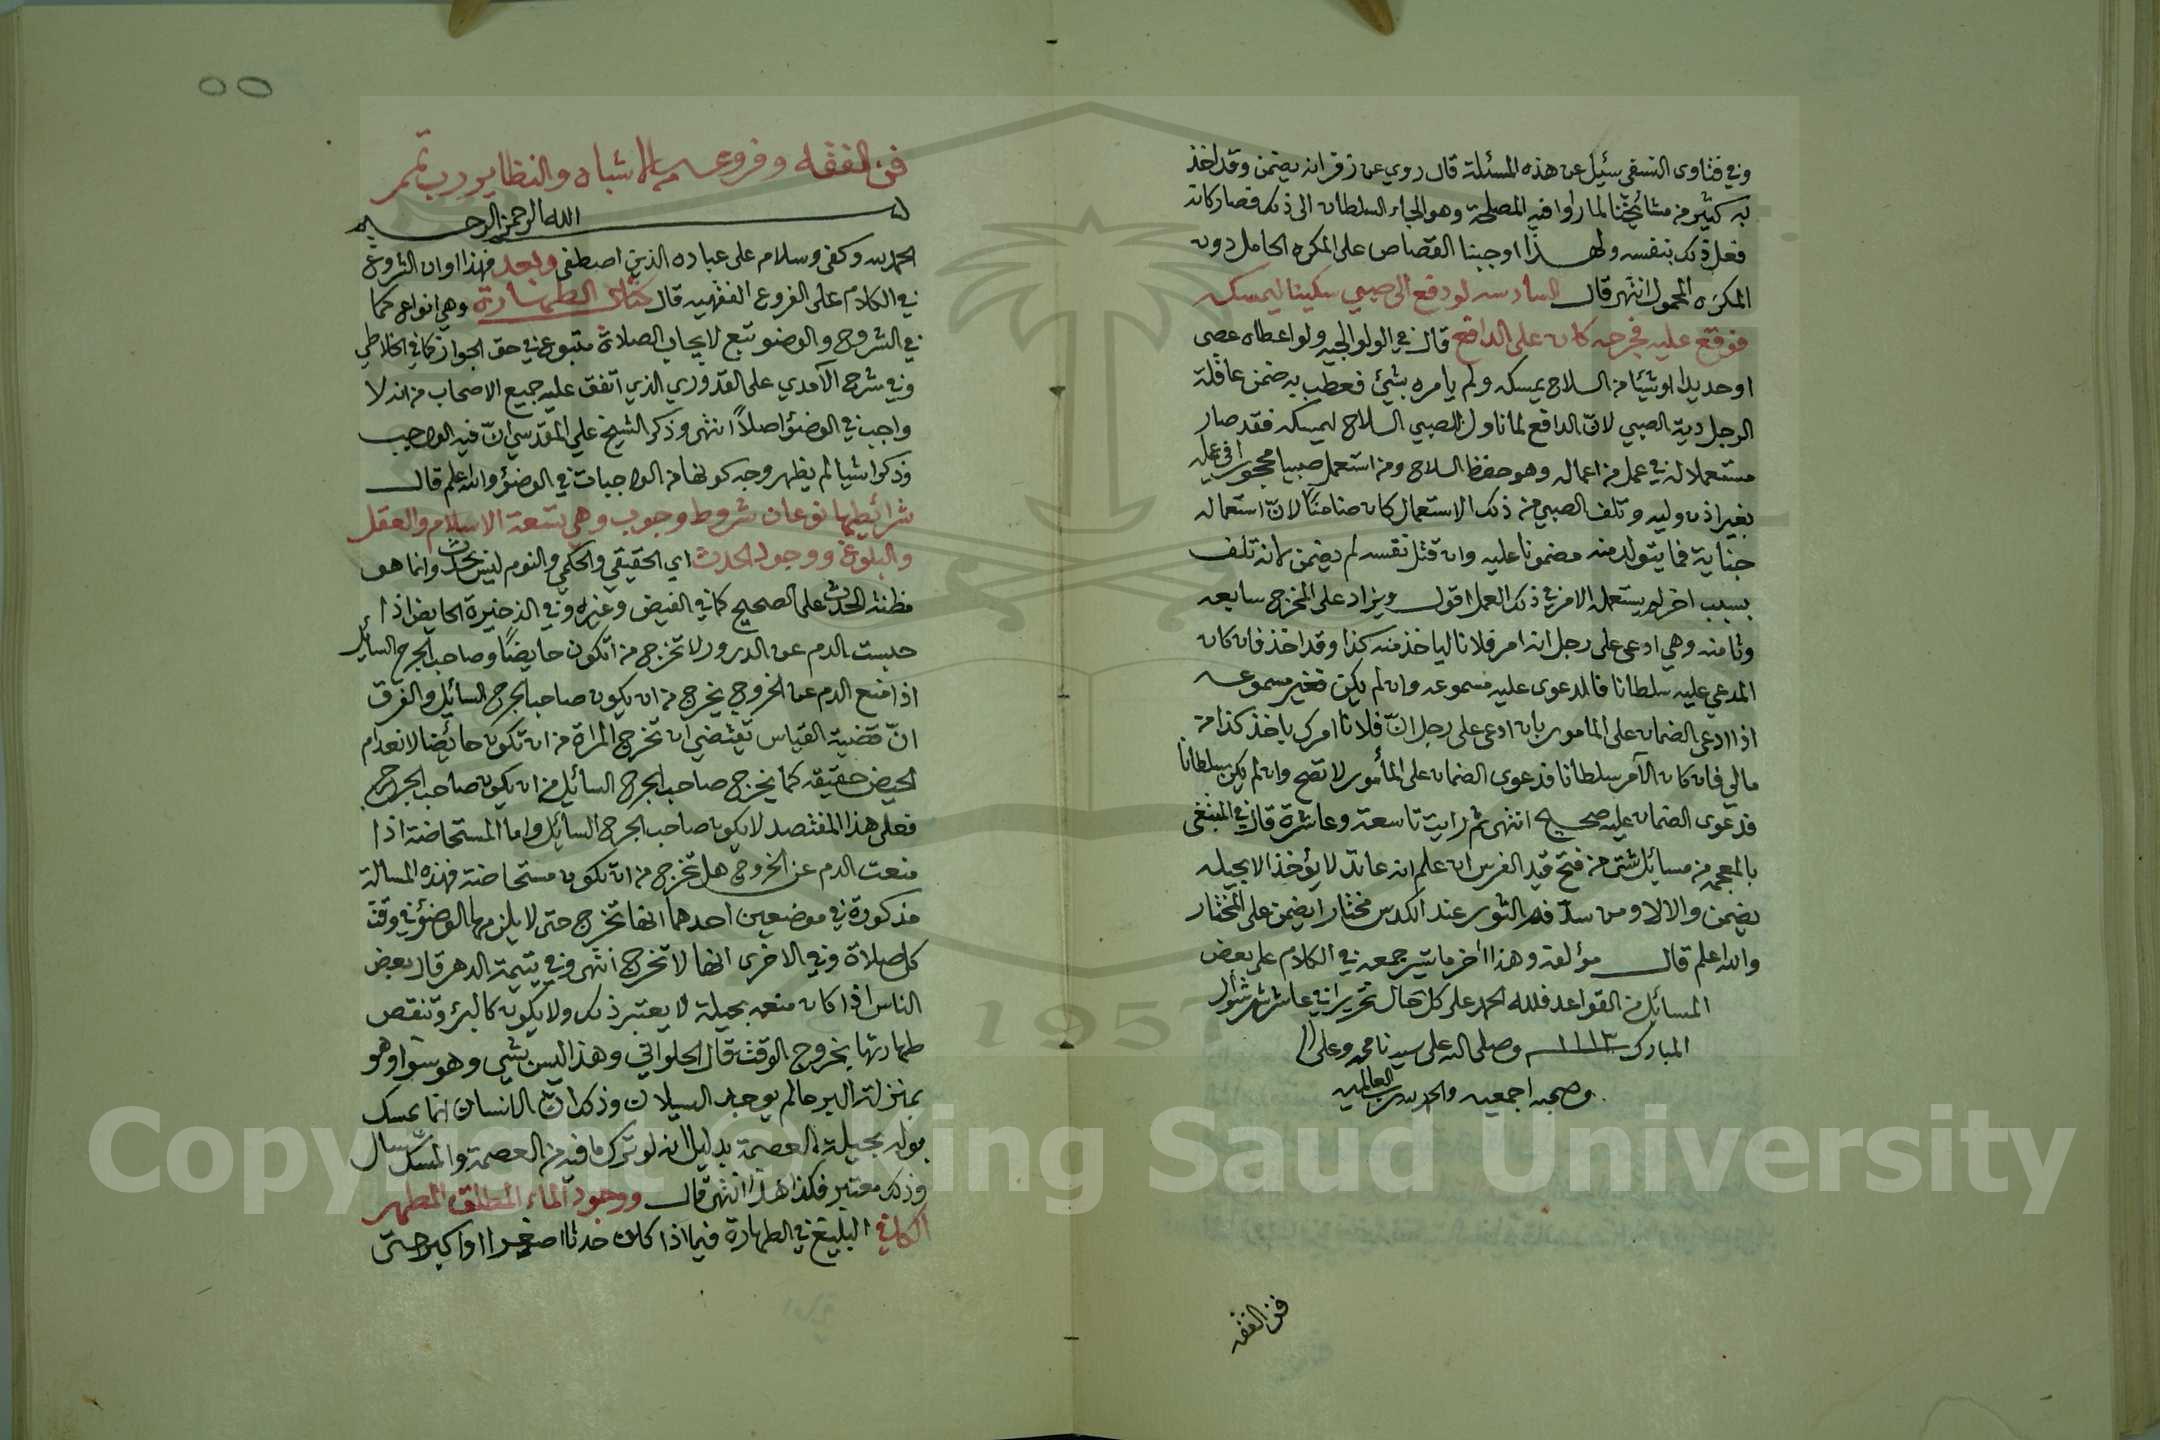 وفي فتاوى النسفي سئيل عن هذه المسئلة قال روي عن زفر انه يضمن وقد اخذ
به كثير من مشائخنا لما راوا فيه المصلحة وهو الجاء السلطان الى ذلك فصار كانه
فعل ذلك بنفسه ولهذا اوجبنا القصاص على المكره الحامل دون
المكرَه المحمول انتهى قال السادسه لو دفع الى صبي سكينا ليمسكه
فوقع عليه فجرحه كان على الدافع قال في الولوالجيه ولو اعطاه عصى
او حديدا او شيئا من السلاح يمسكه ولم يامره بشيئ فعطب به ضمن عاقلة
الرجل دية الصبي لانّ الدافع لما ناول الصبي السلاح ليمسكه فقد صار
مستعملا له في عمل من اعماله وهو حفظ السلاح ومن استعمل صبيا محجورا في عمله
بغير اذن وليه وتلف الصبي من ذلك الاستعمال كان ضامنًا لانّ استعماله
جناية فما يتولد منه مضمونا عليه وان قتل نفسه لم يضمن لانه تلف
بسبب اخر لم يستعمله الامر في ذلك العمل اقول ويزاد على المخرج سابعه
وثامنه وهي ادعى على رجل انه امر فلانا لياخذ منه كذا وقد اخذ فان كان
المدعي عليه سلطانا فالدعوى عليه مسموعه وان لم يكن فغير مسموعه
اذا ادعى الضمان على المامور بان ادعى على رجل انّ فلانا امرك باخذ كذا من
مالي فان كان الآمر سلطانا فدعوى الضمان على المأمور لا تصح وان لم يكن سلطانا
فدعوى الضمان عليه صحيح انتهى ثم رايت تاسعة وعاشرة قال في المبتغى
بالمعجمه من مسائل شتى من فتح قيد الفرس ان علم انه عادته لا يؤخذ الا بحيله
يضمن والا لا ومن سدّ فم الثور عند الكدس مختارا يضمن على المختار
والله اعلم قال مؤلفه وهذا اخر ما تيسر جمعه في الكلام على بعض
المسائل من القواعد فلله الحمد على كل حال تحريرا في عاشر شهر شوال
المبارك ١١١٣ وصلى الله على سيدنا محمد وعلى ال
وصحبه اجمعين والحمد لله رب العالمين
فن الفقه
٥٥
فن الفقه وفروعه من الاشباه والنظاير رب تمم
بسم الله الرحمن الرحيم
الحمد لله وكفى وسلام على عباده الذين اصطفى وبعد فهذا اوان الشروع
في الكلام على الفروع الفقهيه قال كتاب الطهارة وهي انواع كما
في الشروح والوضو تبع لايجاب الصلاة متبوع في حق الجواز كما في الخلاطي
وفي شرح الآمدي على القدوري الذي اتفق عليه جميع الاصحاب من انه لا
واجب في الوضؤ اصلاً انتهى وذكر الشيخ علي المقدسي انّ فيه الواجب
وذكر اشيا لم يظهر وجه كونها من الواجبات في الوضؤ والله اعلم قال
شرائطها نوعان شروط وجوب وهي تسعة الاسلام والعقل
والبلوغ ووجود الحدث اي الحقيقي والحكمي والنوم ليس بحدث وانما هو
مظنة الحدث على الصحيح كما في الفيض وغيره وفي الذخيرة الحايض اذا
حبست الدم عن الدرور لا تخرج من ان تكون حايضًا وصاحب الجرح السائل
اذا منع الدم عن الخروج يخرج من ان يكون صاحب الجرح السائل والفرق
انّ قضية القياس تقتضي ان تخرج المراة من ان تكون حائضا لانعدام
الحيض حقيقه كما يخرج صاحب الجرح السائل من ان يكون صاحب الجرح
فعلى هذا المفتصد لا يكون صاحب الجرح السائل واما المستحاضة اذا
منعت الدم عن الخروج هل تخرج من ان تكون مستحاضة فهذه المسالة
مذكورة في موضعين احدهما انها تخرج حتى لا يلزمها الوضؤ في وقت
كل صلاة وفي الاخرى انها لا تخرج انتهى وفي يتيمة الدهر قال بعض
الناس اذا كان منعه بحيلة لا يعتبر ذلك ولا يكون كالبرؤ وتنقص
طهارتها بخروج الوقت قال الحلواني وهذا ليس بشي وهو سوا وهو
بمنزلة البر ما لم يوجد السيلان وذكر انّ الانسان انما يمسك
بوله بحيلة العصمة بدليل انه لو ترك ما فيه من العصمة والمسك سال
وذلك معتبر فكذا هذا انتهى قال ووجود الماء المطلق المطهر
الكافي البليغ في الطهارة فيما اذا كان حدثا اصغرا او اكبر حتى